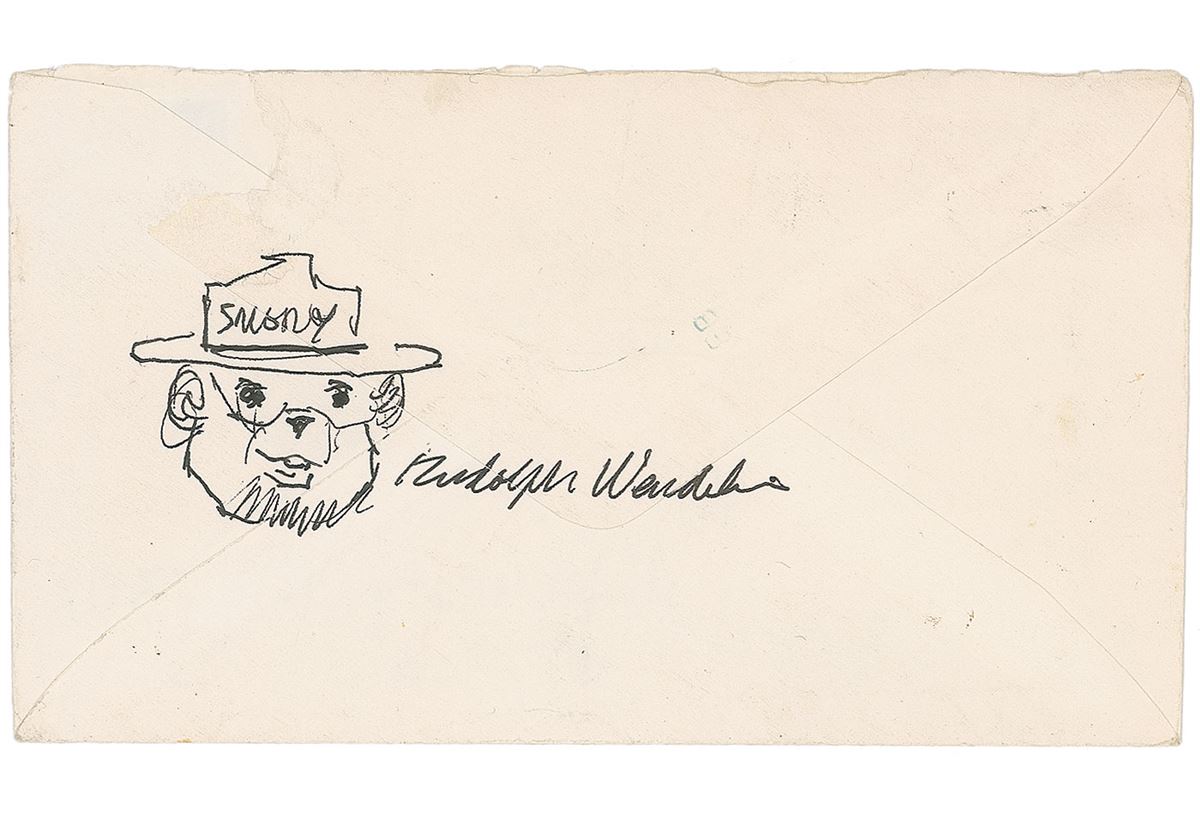 SMOKEY
Rudolph Wendelin